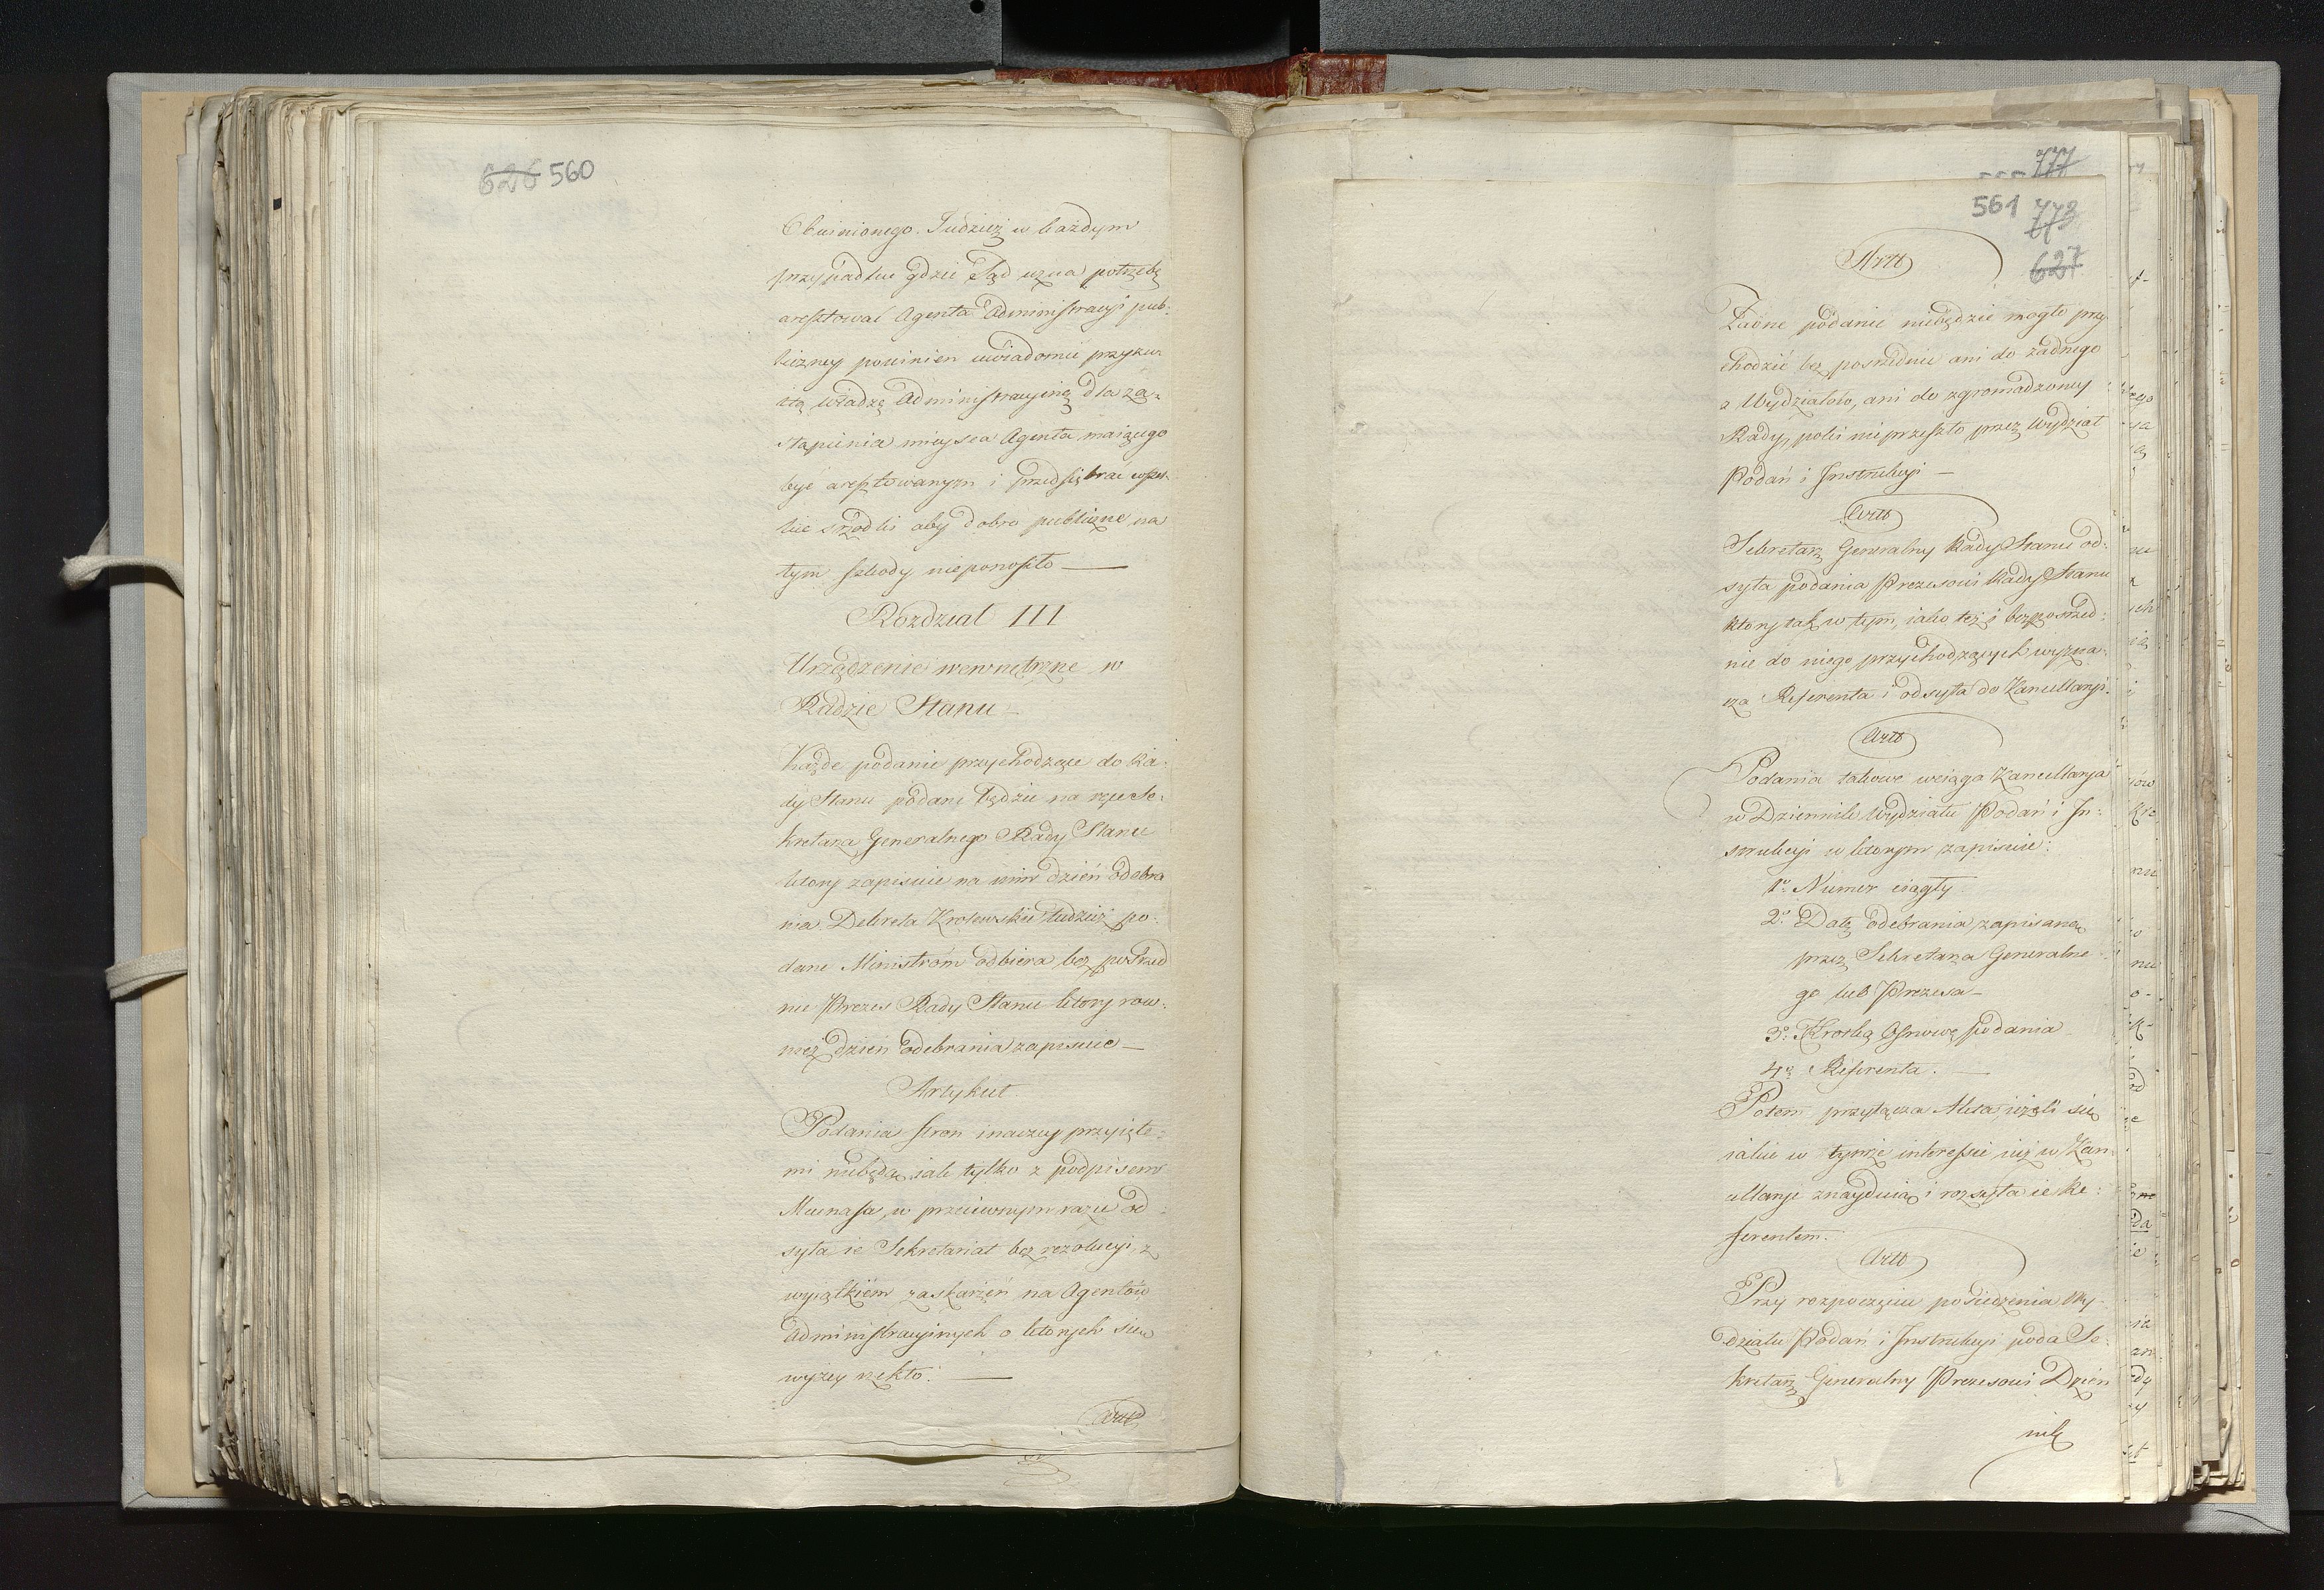 626 560
Obwinionego. Tudzież w każdym
przypadku gdzie Sąd uzna potrzebę
aresztować Agenta Administracyi pub-
liczney powinien uwiadomić przyzwo-
itą władzę Administracyiną dla za-
stąpienia mieysca Agenta maiącego
być aresztowanym i przedsiębrać wszel-
kie srzodki aby dobro publiczne na
tym szkody nieponosiło —
Rozdział III
Urządzenie wewnętrzne w
Radzie Stanu
Każde podanie przychodzące do Ra-
dy Stanu podane będzie na ręce Se-
kretarza Generalnego Rady Stanu
ktory zapisuie na nim dzień odebra
nia. Dekreta Krolewskie tudzież po-
dane Ministrom odbiera bez posrzed
nie Prezes Rady Stanu ktory row-
nież dzień odebrania zapisuie —
Artykuł
Podania stron inaczey przyięte-
mi niebędą iak tylko z podpisem
Mecenasa, w przeciwnym razie od
syła ie Sekretariat bez rezolucyi, z
wyiątkiem zaskarżeń na Agentów
Administracyinych o ktorych się
wyżey rzekło. —
Artt
777
561 773
627
Artt
Żadne podanie niebędzie mogło przy
chodzić bez posrednie ani do żadnego
z Wydziałow, ani do zgromadzoney
Rady, poki nieprzeszło przez Wydział
Podań i Instrukcyi —
Artt
Sekretarz Generalny Rady Stanu od-
syła podania Prezesowi Rady Stanu
ktory tak w tym, iako też i bezposrzed-
nie do niego przychodzących wyzna-
cza Referenta i odsyła do Kancellaryi.
Artt
Podania takowe wciąga Kancellarya
w Dziennik Wydziału Podań i In-
strukcyi w ktorym zapisuie:
1º Numer ciągły
2º Datę odebrania zapisaną
przez Sekretarza Generalne
go lub Prezesa —
3º Krotką Osnowę podania
4º Referenta. —
Potem przyłącza Akta, ieżeli się
iakie w tymże interessie iuż w Kan-
cellaryi znayduią i rozsyła ie Re-
ferentom.
Artt
Przy rozpoczęciu posiedzenia Wy-
działu Podań i Instrukcyi poda Se-
kretarz Generalny Prezesowi Dzien
nik